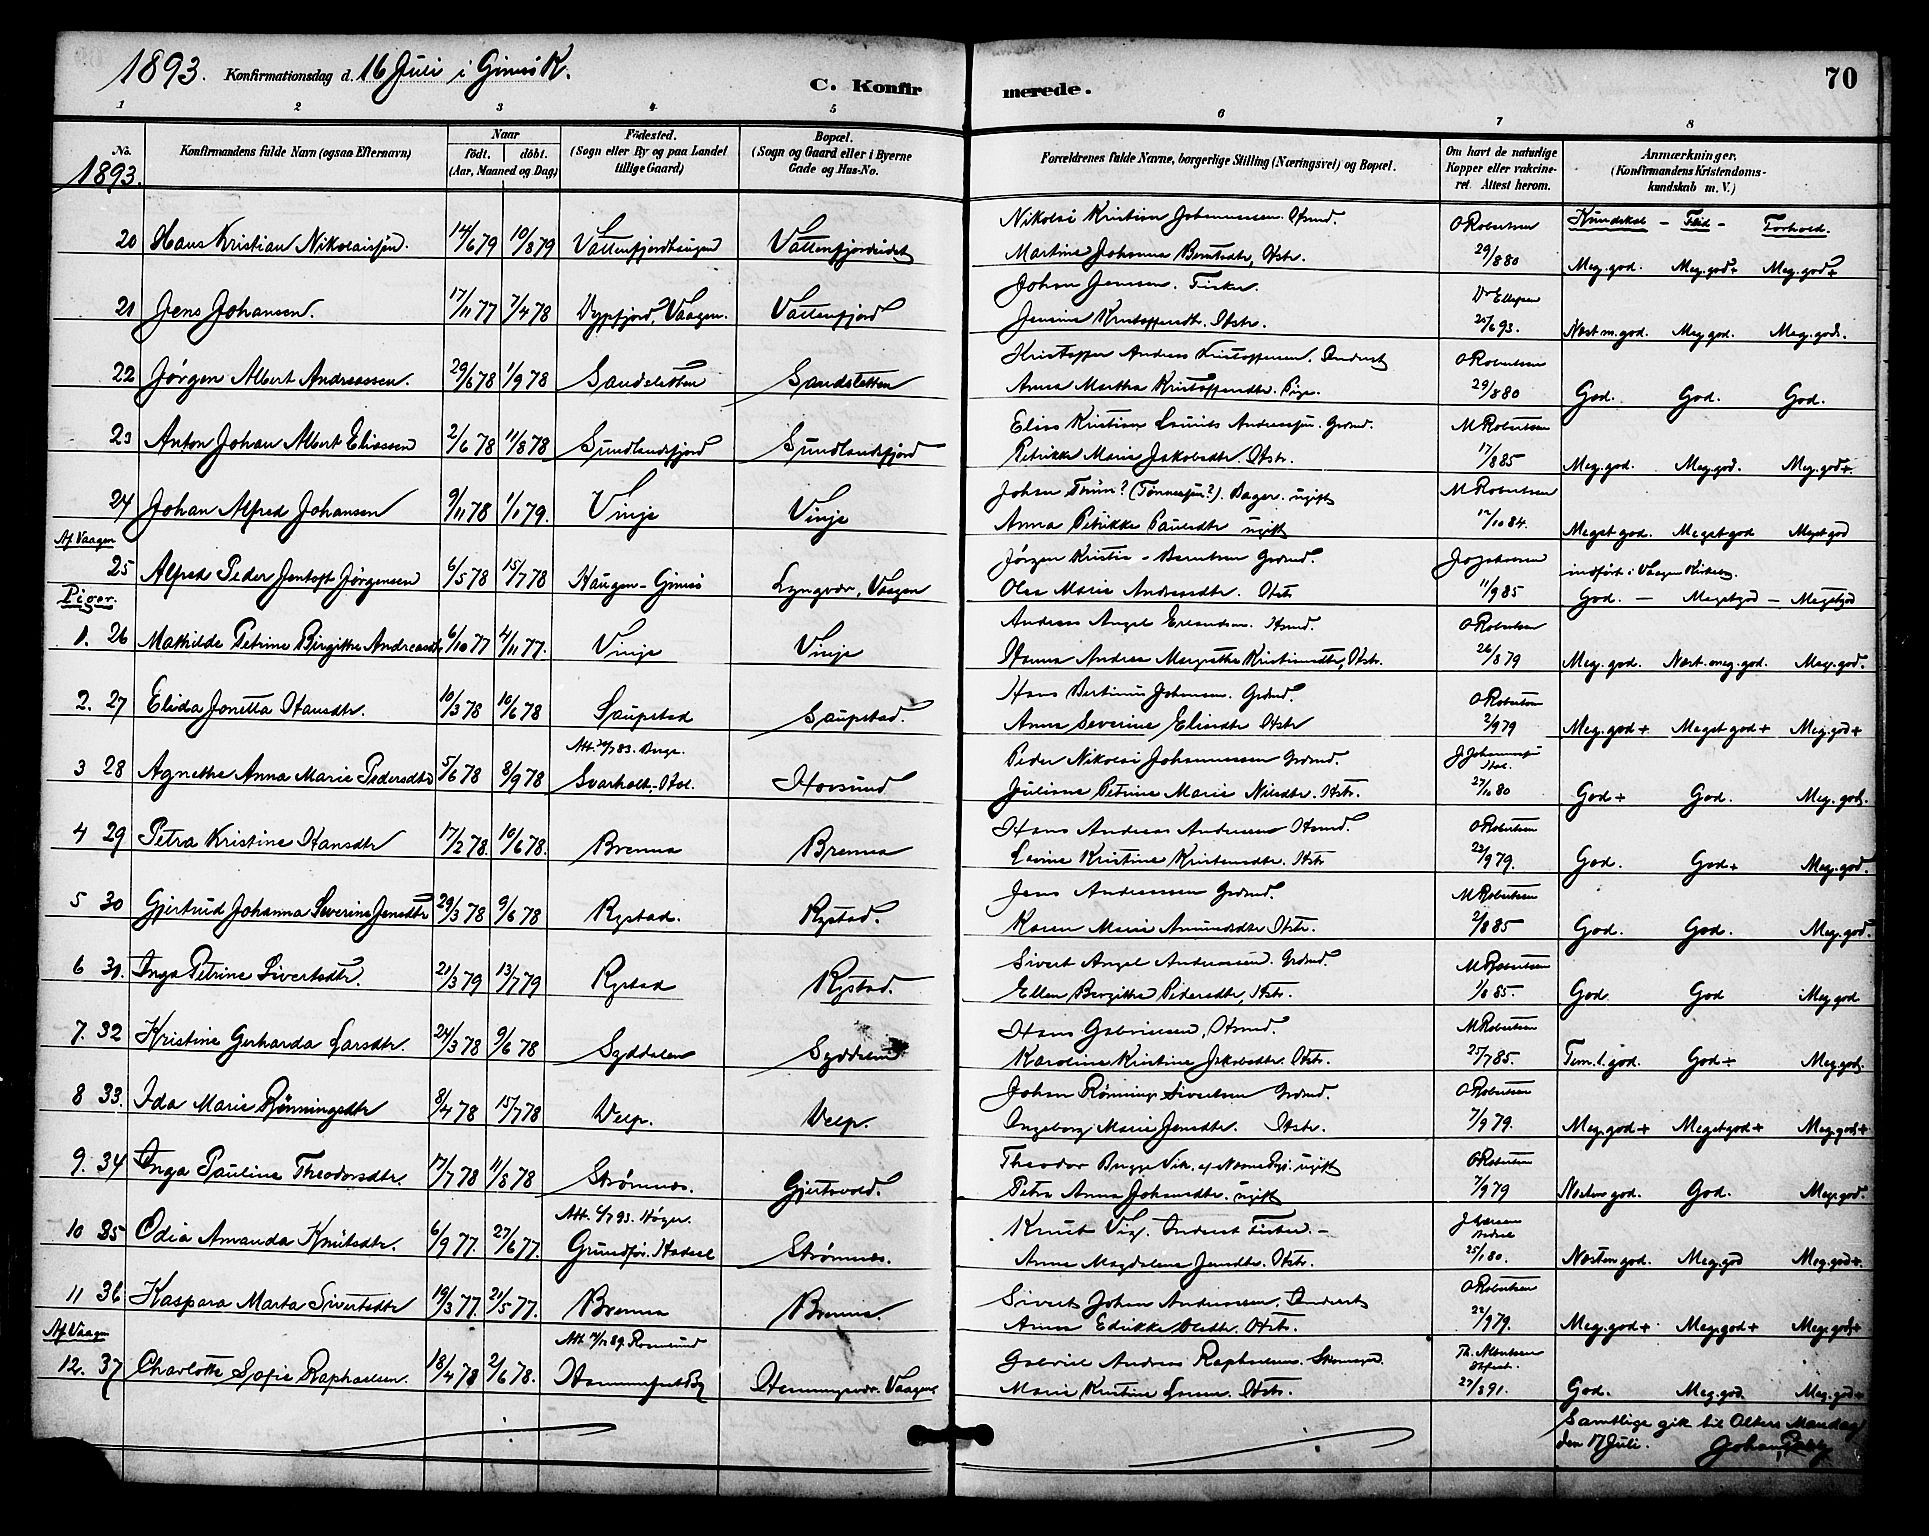 1893. Konfirmationsdag d. 16 Juli i Gimsö K.
C. Konfir merede. 70
1 2 3 4 5 6 7 8
No. Konfirmandens fulde Navn (ogsaa Efternavn) Naar født. døbt. (Aar, Maaned og Dag) Fødested. (Sogn eller By og paa Landet tillige Gaard) Bopæl. (Sogn og Gaard eller i Byerne Gade og Hus-No. Forældrenes fulde Navne, borgerlige Stilling (Næringsvei) og Bopæl. Om havt de naturlige Kopper eller vakcineret. Attest herom. Anmærkninger. (Konfirmandens Kristendomskundskab m. V.)
1893.
Kundskab - Flid - Forhold.
20 Hans Kristian Nikolaisøn. 14/6 79 10/8 79 Vattenfjordhaugen Vattenfjordeidet
Nikolai Kristian Johannessen. Hsmd. O Robertsen
Martine Johanna Berntsdtr, Hstr. 29/8 80 Meg. god. Meg. god+ Meg. god+
21 Jens Johansen. 17/11 77 7/4 78 Dypfjord, Vaagen. Vattenfjord
Johan Jensen. Fisker Dr Ellefsen
Jensine Kristoffersdtr. Hstr. 25/6 93. Næst m. god. Meg god. Meg. god.
22 Jørgen Albert Andreassen. 29/6 78 1/9 78 Sandsletten Sandsletten
Kristoffer Andreas Kristoffersen. Inderst O Robertsen
Anna Martha Kristoffersdtr. Pige. 29/8 80 God. God. God.
23 Anton Johan Albert Eliassen 2/6 78 11/8 78 Sundlandsfjord Sundlandsfjord
Elias Kristian Lauritz Andreassøn. Grdmd. M Robertsen
Petrikke Marie Jakobsdtr. Hstr. 17/8 85 Meg. god. Meg. god. Meg. god+.
24 Johan Alfred Johansen 9/11 78 1/1 79. Vinje Vinje
Johan Thun? (Tønnesøn?). Bager. ugift M Robertsen
Anna Petrikke Paulsdtr ugift 12/10 84. Meget god. Meget god Meget god
Af Vaagen
25 Alfred Peder Jentoft Jørgensen 6/5 78 15/7 78 Haugen - Gimsö Lyngvær, Vaagen
Jørgen Kristia - Berntsen Grdmd. indført i Vaagen Kirkebog.
Olea Marie Andreasdtr. Hstr 11/9 85 God. - Meget god - Meget god
Piger.
1. 26 Mathilde Petrine Birgithe Andreasdtr 6/10 77 4/11 77. Vinje Vinje
Andreas Angel Erlandsen. Hsmd. O Robertsen
Hanna Andrea Margrethe Kristiansdtr, Hstr. 26/8 79 Meg. god. Næst. meg. god. Meg. god.
2. 27 Elida Jonetta Hansdtr. 10/3 78 10/6 78 Saupstad Saupstad.
Hans Bertinus Johansen. Grdmd. O Robertsen
Anna Severine Eliasdtr Hstr 2/9 79 Meg. god + Meget god + Meg. god +
3 28 Agnethe Anna Marie Pedersdtr 5/6 78 8/9 78 Svarholt - Hol. Hovsund
Peder Nikolai Johannessen Grdmd.
Juliane Petrine Marie Nilsdtr. Hstr. 27/10 80 God + God. Meg. god.
4 29 Petra Kristine Hansdtr 17/2 78. 10/6 78. Brenna Brenna
Hans Andreas Andersen Hsmd. O Robertsen
Lovise Kristine Kristensdtr. Hstr 22/9 79. God. God + Meg. god.
5 30 Gjertrud Johanna Severine Jensdtr 29/3 78 9/6 78 Rystad. Rystad.
Jens Andreassen Grdmd. M Robertsen
Karen Marie Amundsdtr Hstr. 2/8 85 God. God. Meg. god.
6 31. Inga Petrine Sivertsdtr. 21/3 79 13/7 79 Rystad Rystad.
Sivert Angel Andreassen. Grdmd. M Robertsen
Ellen Birgithe Pedersdtr, Hstr. 1/8 85. God. God Meg. god
7. 32 Kristine Gerharda Larsdtr. 24/3 78 9/6 78 Syddalen Syddalen
Hans Gabrielsen, Hsmd. M Robertsen
Karoline Kristine Jakobsdtr. Hstr. 25/7 85. Tem. l. god. God ÷ Meg. god.
8 33. Ida Marie Rønningsdtr 8/4 78 15/7 78 Velp. Velp.
Johan Rønning Sivertsen Grdmd. O Robertsen
Ingeborg Marie Jensdtr. Hstr. 7/9 79. Meg. god + Meget god + Meg. god +
9. 34 Inga Pauline Theodorsdtr. 17/7 78 11/8 78 Strømnes. Gjertsvold.
Theodor Bugge Vik. af Næsne Pgj. ugift O Robertsen
Petra Anna Johansdtr. ugift 7/9 79 Næsten god. God. Meg. god.
10 35 Odia Amanda Knutsdtr. 6/9 77. 27/6 77. Att. 6/7 93. Höyer. Grundfør. Hadsel Strømnes.
Knut Vig. Inderst Fisker -
Anne Magdalene Jensdtr. Hstr. 25/1 80. Næsten god. Meg. god Meg. god +.
11 36 Kaspara Marta Sivertsdtr 19/3 77. 21/5 77. Brenna Brenna.
Sivert Johan Andreassen, Inderst O Robertsen
Anna Edrikke Olsdtr. Hstr. 22/9 79. Meg. god + Meg. god + Meg. god +
Af Vaagen
12. 37 Charlotte Sofie Raphaelsen. 18/4 78 2/6 78. Hammerfest By Henningsvær. Vaagen
Gabriel Andreas Raphaelsen.
Marie Kristine Hstr. 27/8 91. God. Meg. god. Meg. god +
Samtlige gik til Alters Mandag
den 17 Juli. Johan